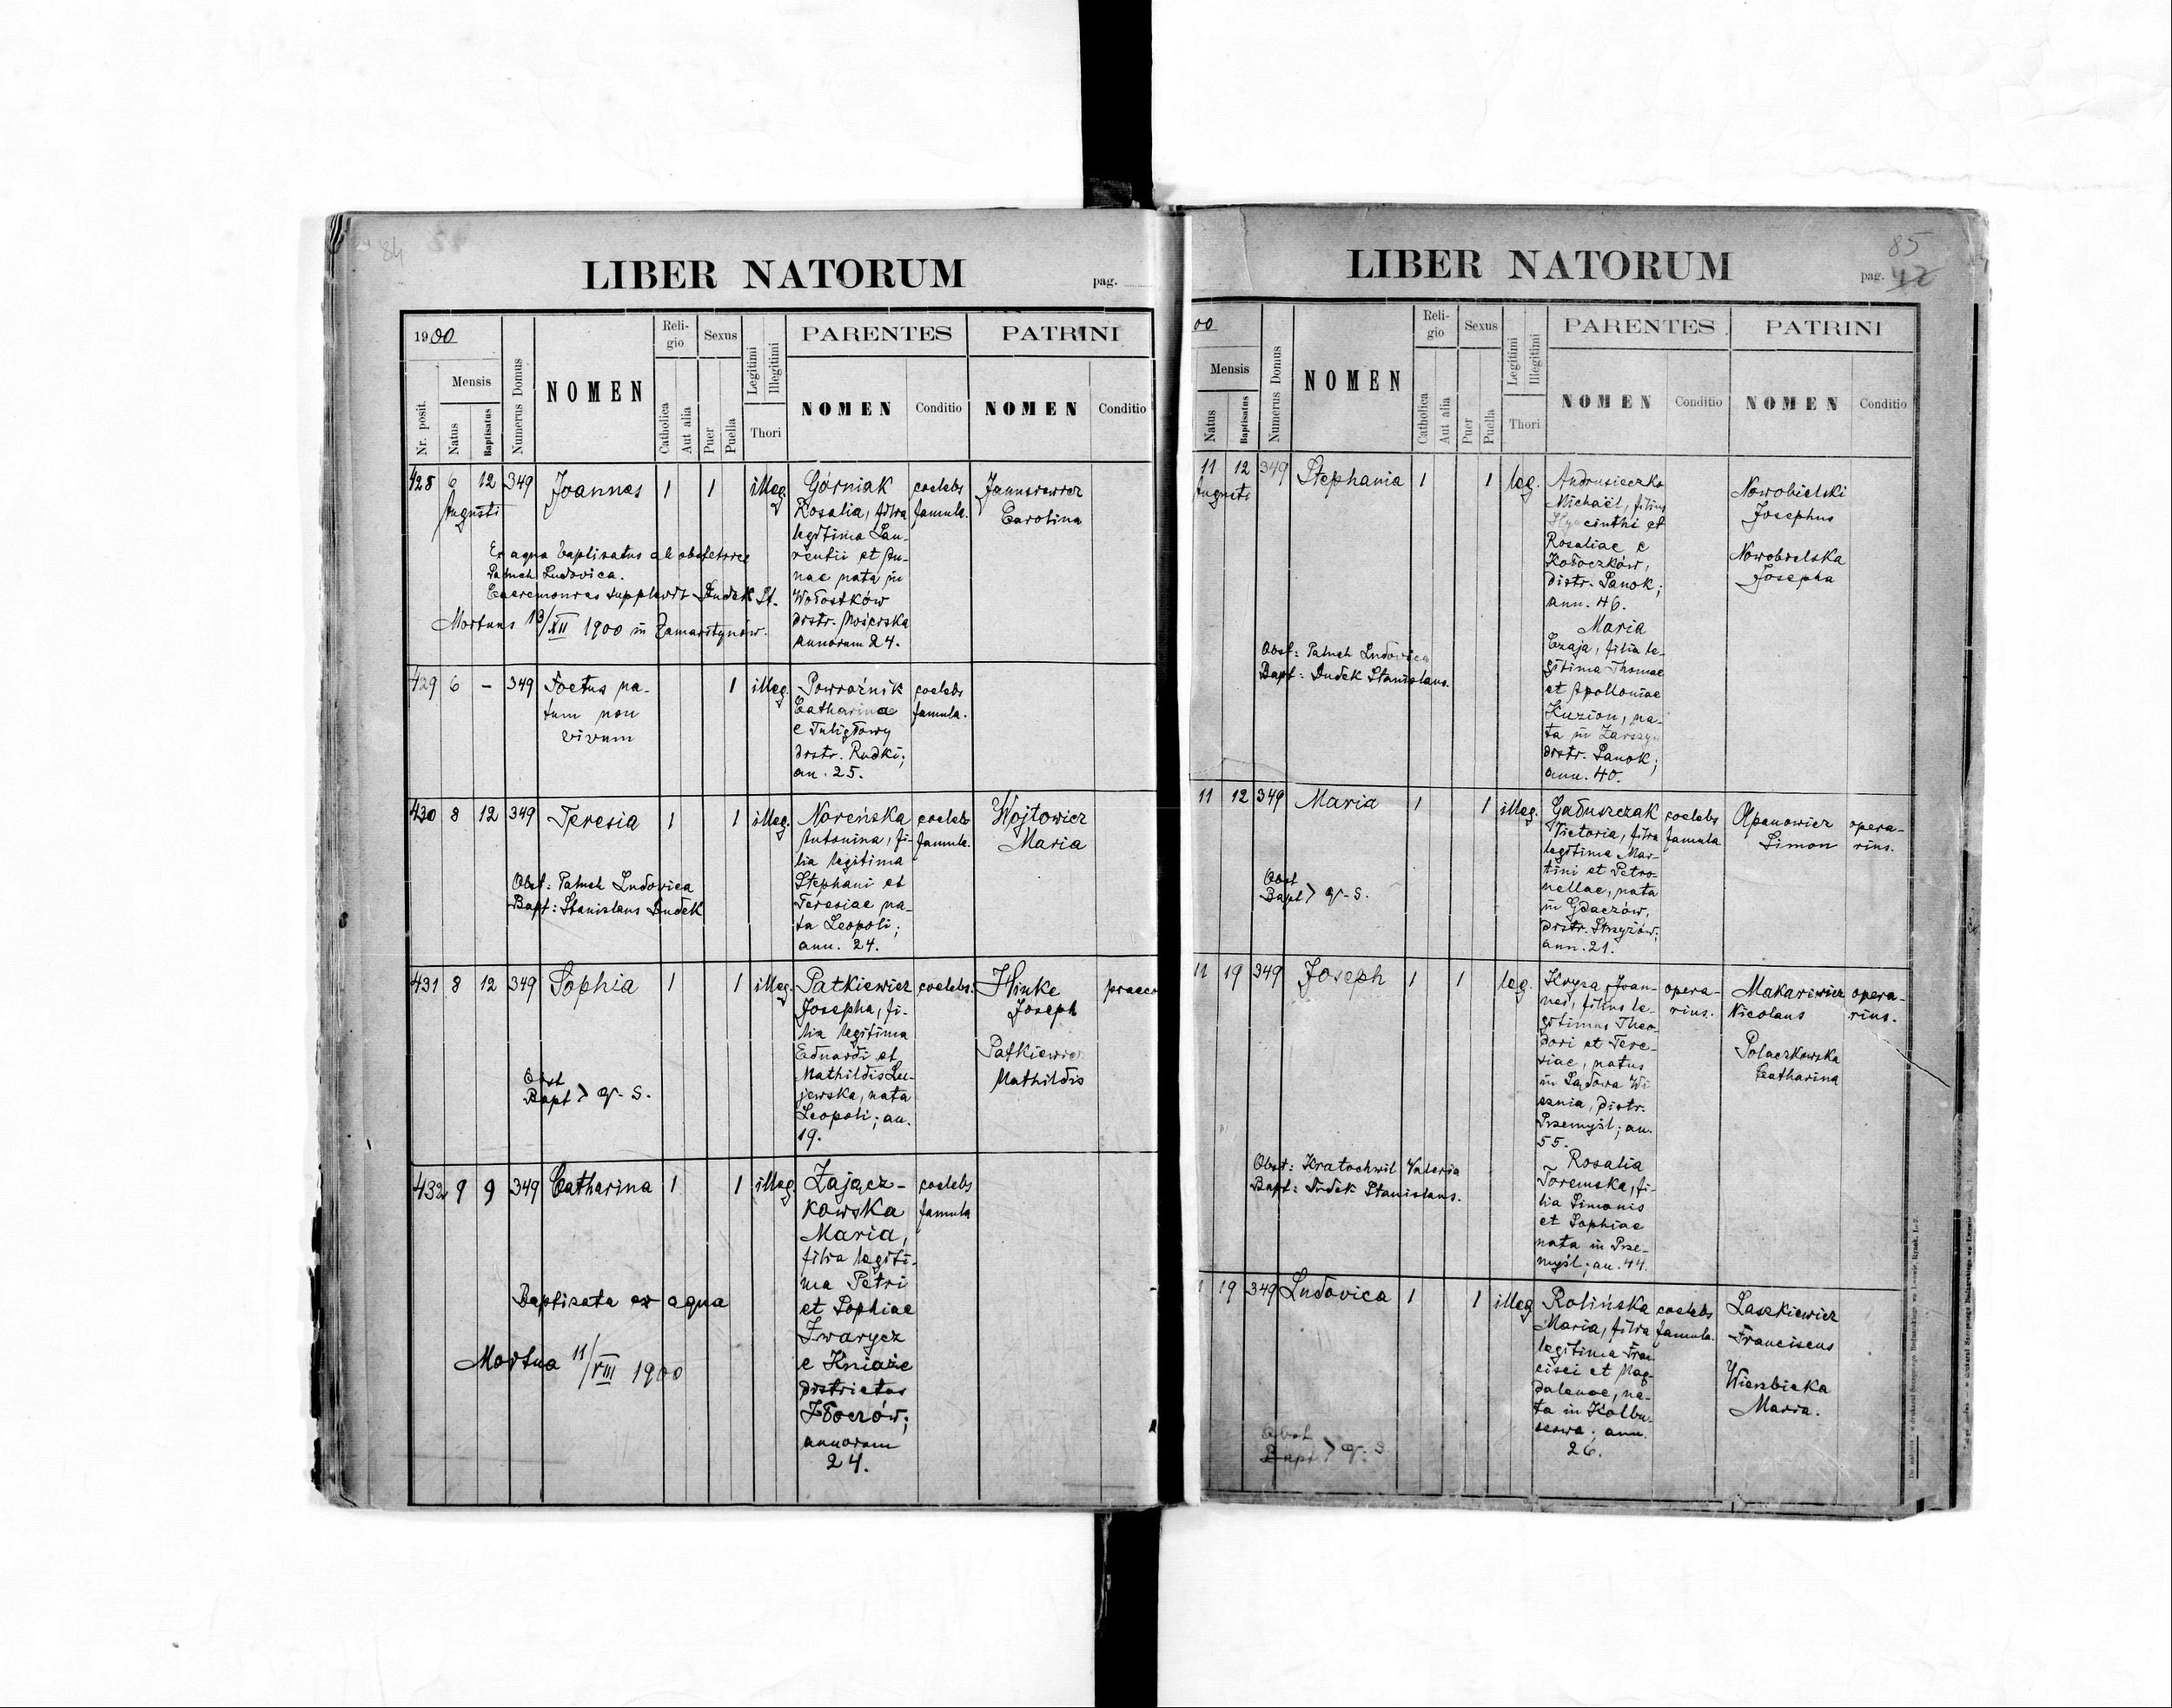 84
LIBER NATORUM
pag.
1900
Nr. posit.
Mensis
Natus
Baptisatus
Numerus Domus
NOMEN
Religio
Catholica
Aut alia
Sexus
Puer
Puella
Legitimi
Illegitimi
Thori
PARENTES
NOMEN
Conditio
PATRINI
NOMEN
Conditio
428 6 12 349 Joannes 1 1 illeg. Górniak coelebs
Augusti
Rosalia, filia famula.
legitima Lau-
rentii et An-
nae nata in
Wołostków
distr. Mościska
annorum 24.
Carolina
Ex aqua baptisatus ab obstetrice
Patuch Ludovica.
Caeremonias supplevit Dudek St.
Mortuus 13/XII 1900 in Zamarstynów.
429 6 - 349 Foetus na-
tum non
vivum
1 illeg. Powroźnik coelebs
Catharina famula.
e Tuligłowy
distr. Rudki;
an. 25.
430 8 12 349 Teresia 1 1 illeg. Noreńska coelebs
Antonina, fi- famula.
lia legitima
Stephani et
Teresiae na-
ta Leopoli;
ann. 24.
Wojtowicz
Maria
Obst: Patuch Ludovica
Bapt: Stanislaus Dudek
431 8 12 349 Sophia 1 1 illeg. Patkiewicz coelebs.
Josepha, fi-
lia legitima
Eduardi et
Mathildis
jewska, nata
Leopoli; an.
19.
Hinke praeco
Joseph
Patkiewicz
Mathildis
Obst
Bapt > q. s.
432 9 9 349 Catharina 1 1 illeg. Zającz- coelebs
kowska famula
Maria,
filia legiti-
ma Petri
et Sophiae
Zwarycz
e Kniaże
districtus
Złoczów;
annorum
24.
Baptisata ex aqua
Mortua 11/VIII 1900
85
LIBER NATORUM
pag. 42
00
Mensis
Natus
Baptisatus
Numerus Domus
NOMEN
Religio
Catholica
Aut alia
Sexus
Puer
Puella
Legitimi
Illegitimi
Thori
PARENTES
NOMEN
Conditio
PATRINI
NOMEN
Conditio
11 12 349 Stephania 1 1 leg.
Augusti
Andrusieczko
Michaël, filius
Hyacinthi et
Rosaliae e
distr. Sanok;
ann. 46.
Maria
Czaja, filia le-
gitima Thomae
et Apolloniae
Kuzion, na-
ta in Zarszyn
distr. Sanok;
ann. 40.
Nowobielski
Josephus
Nowobielska
Josepha
Obst: Patuch Ludovica
Bapt: Dudek Stanislaus.
11 12 349 Maria 1 1 illeg. Gałuszczak coelebs
Victoria, filia famula
legitima Mar-
tini et Petro-
nellae, nata
in Gdaczów,
distr. Strzyżów;
ann. 21.
Apanowicz opera-
Simon rius.
Obst
Bapt > q. s.
11 19 349 Joseph 1 1 leg.
Krysa Joan- opera-
nes, filius le- rius.
gitimus Theo-
dori et Tere-
siae, natus
in Sądowa Wi
sznia, distr.
Przemyśl; an.
55.
Rosalia
Toremska, fi-
lia Simonis
et Sophiae
nata in Prze-
myśl; an. 44.
Makariewicz opera-
Nicolaus rius.
Polaczkowska
Catharina
Obst: Kratochwil Valeria
Bapt: Dudek Stanislaus.
1 19 349 Ludovica 1 1 illeg. Rolińska coelebs
Maria, filia famula.
legitima Fran
cisci et Mag-
dalenae, na-
ta in Kolbu-
szowa; ann.
26.
Laszkiewicz
Franciscus
Wierzbicka
Maria.
Obst
Bapt > q. s.